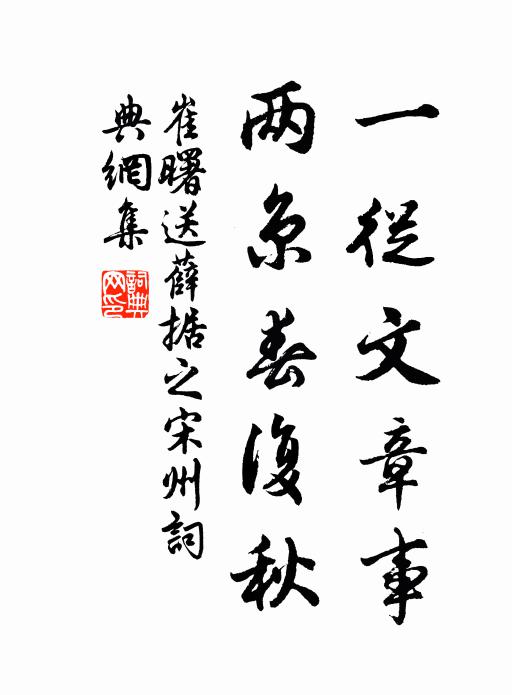 一從文章事
两京春復秋
崔曙送薛据之宋州詞
典網集
詞典
网印